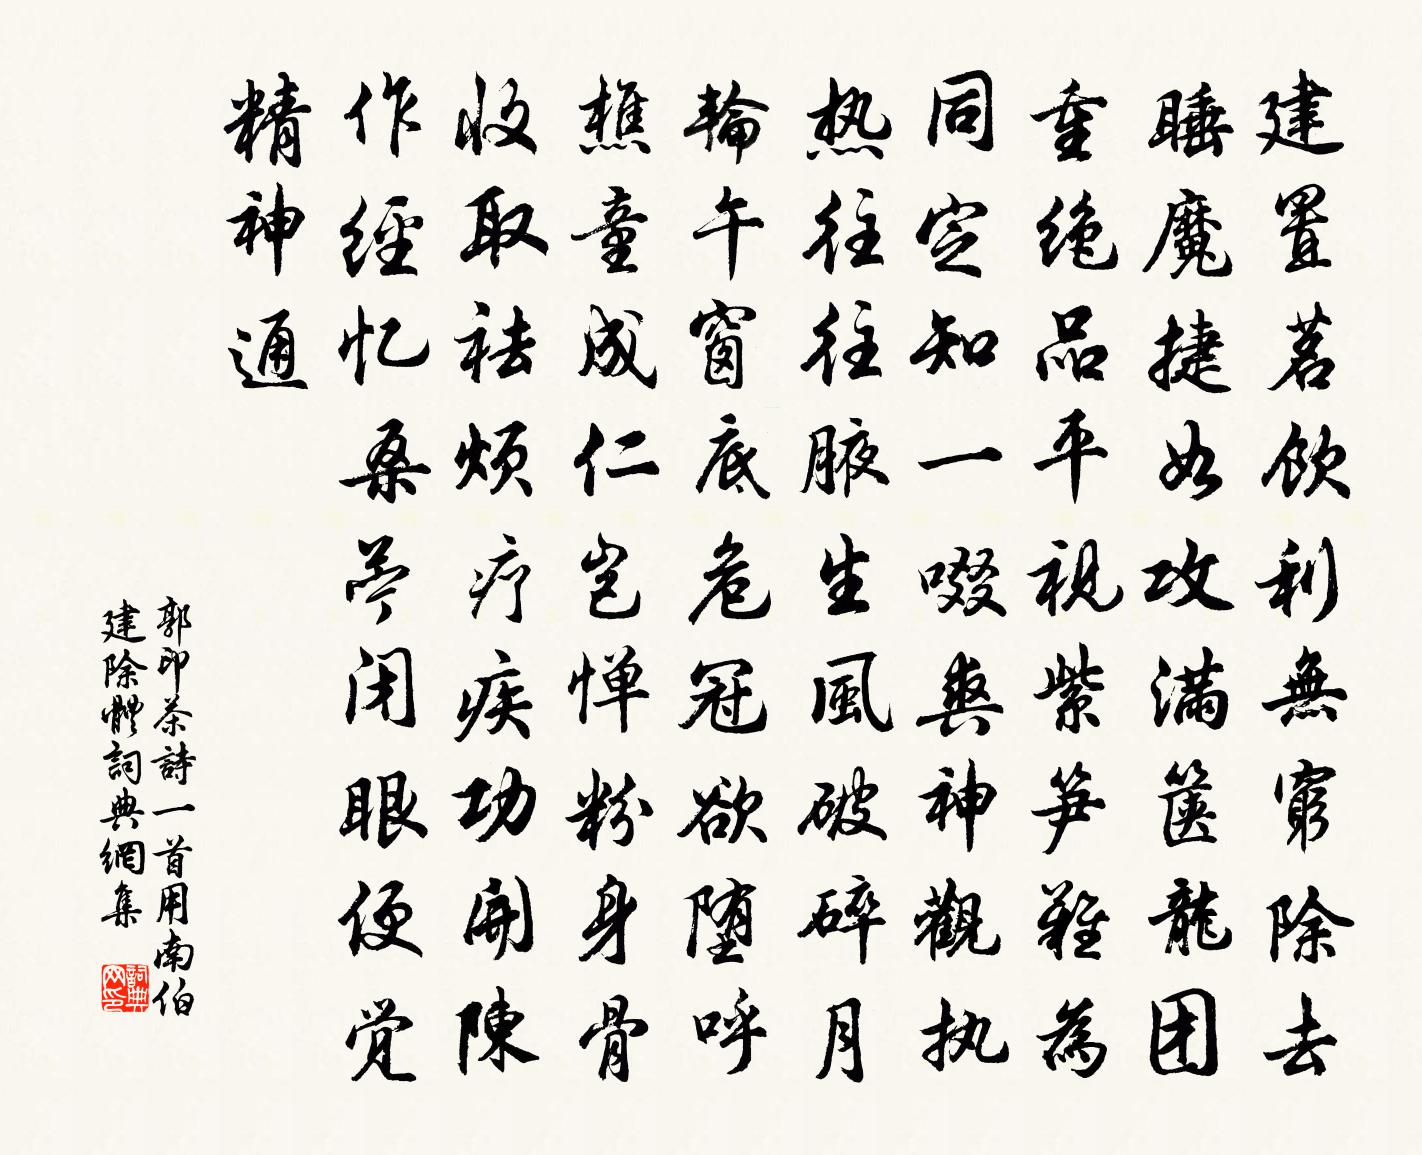 建置茗飲利無窮除去
睡魔捷如攻滿篋龍团
重绝品平視紫笋難為
同定知一啜爽神觀执
热往往腋生風破碎月
輪午窗底危冠欲堕呼
樵童成仁岂惮粉身骨
收取祛烦疗疾功開陳
作經忆桑苎闭眼便觉
精神通
郭印茶詩一首用南伯
建除體詞典網集
詞典网印